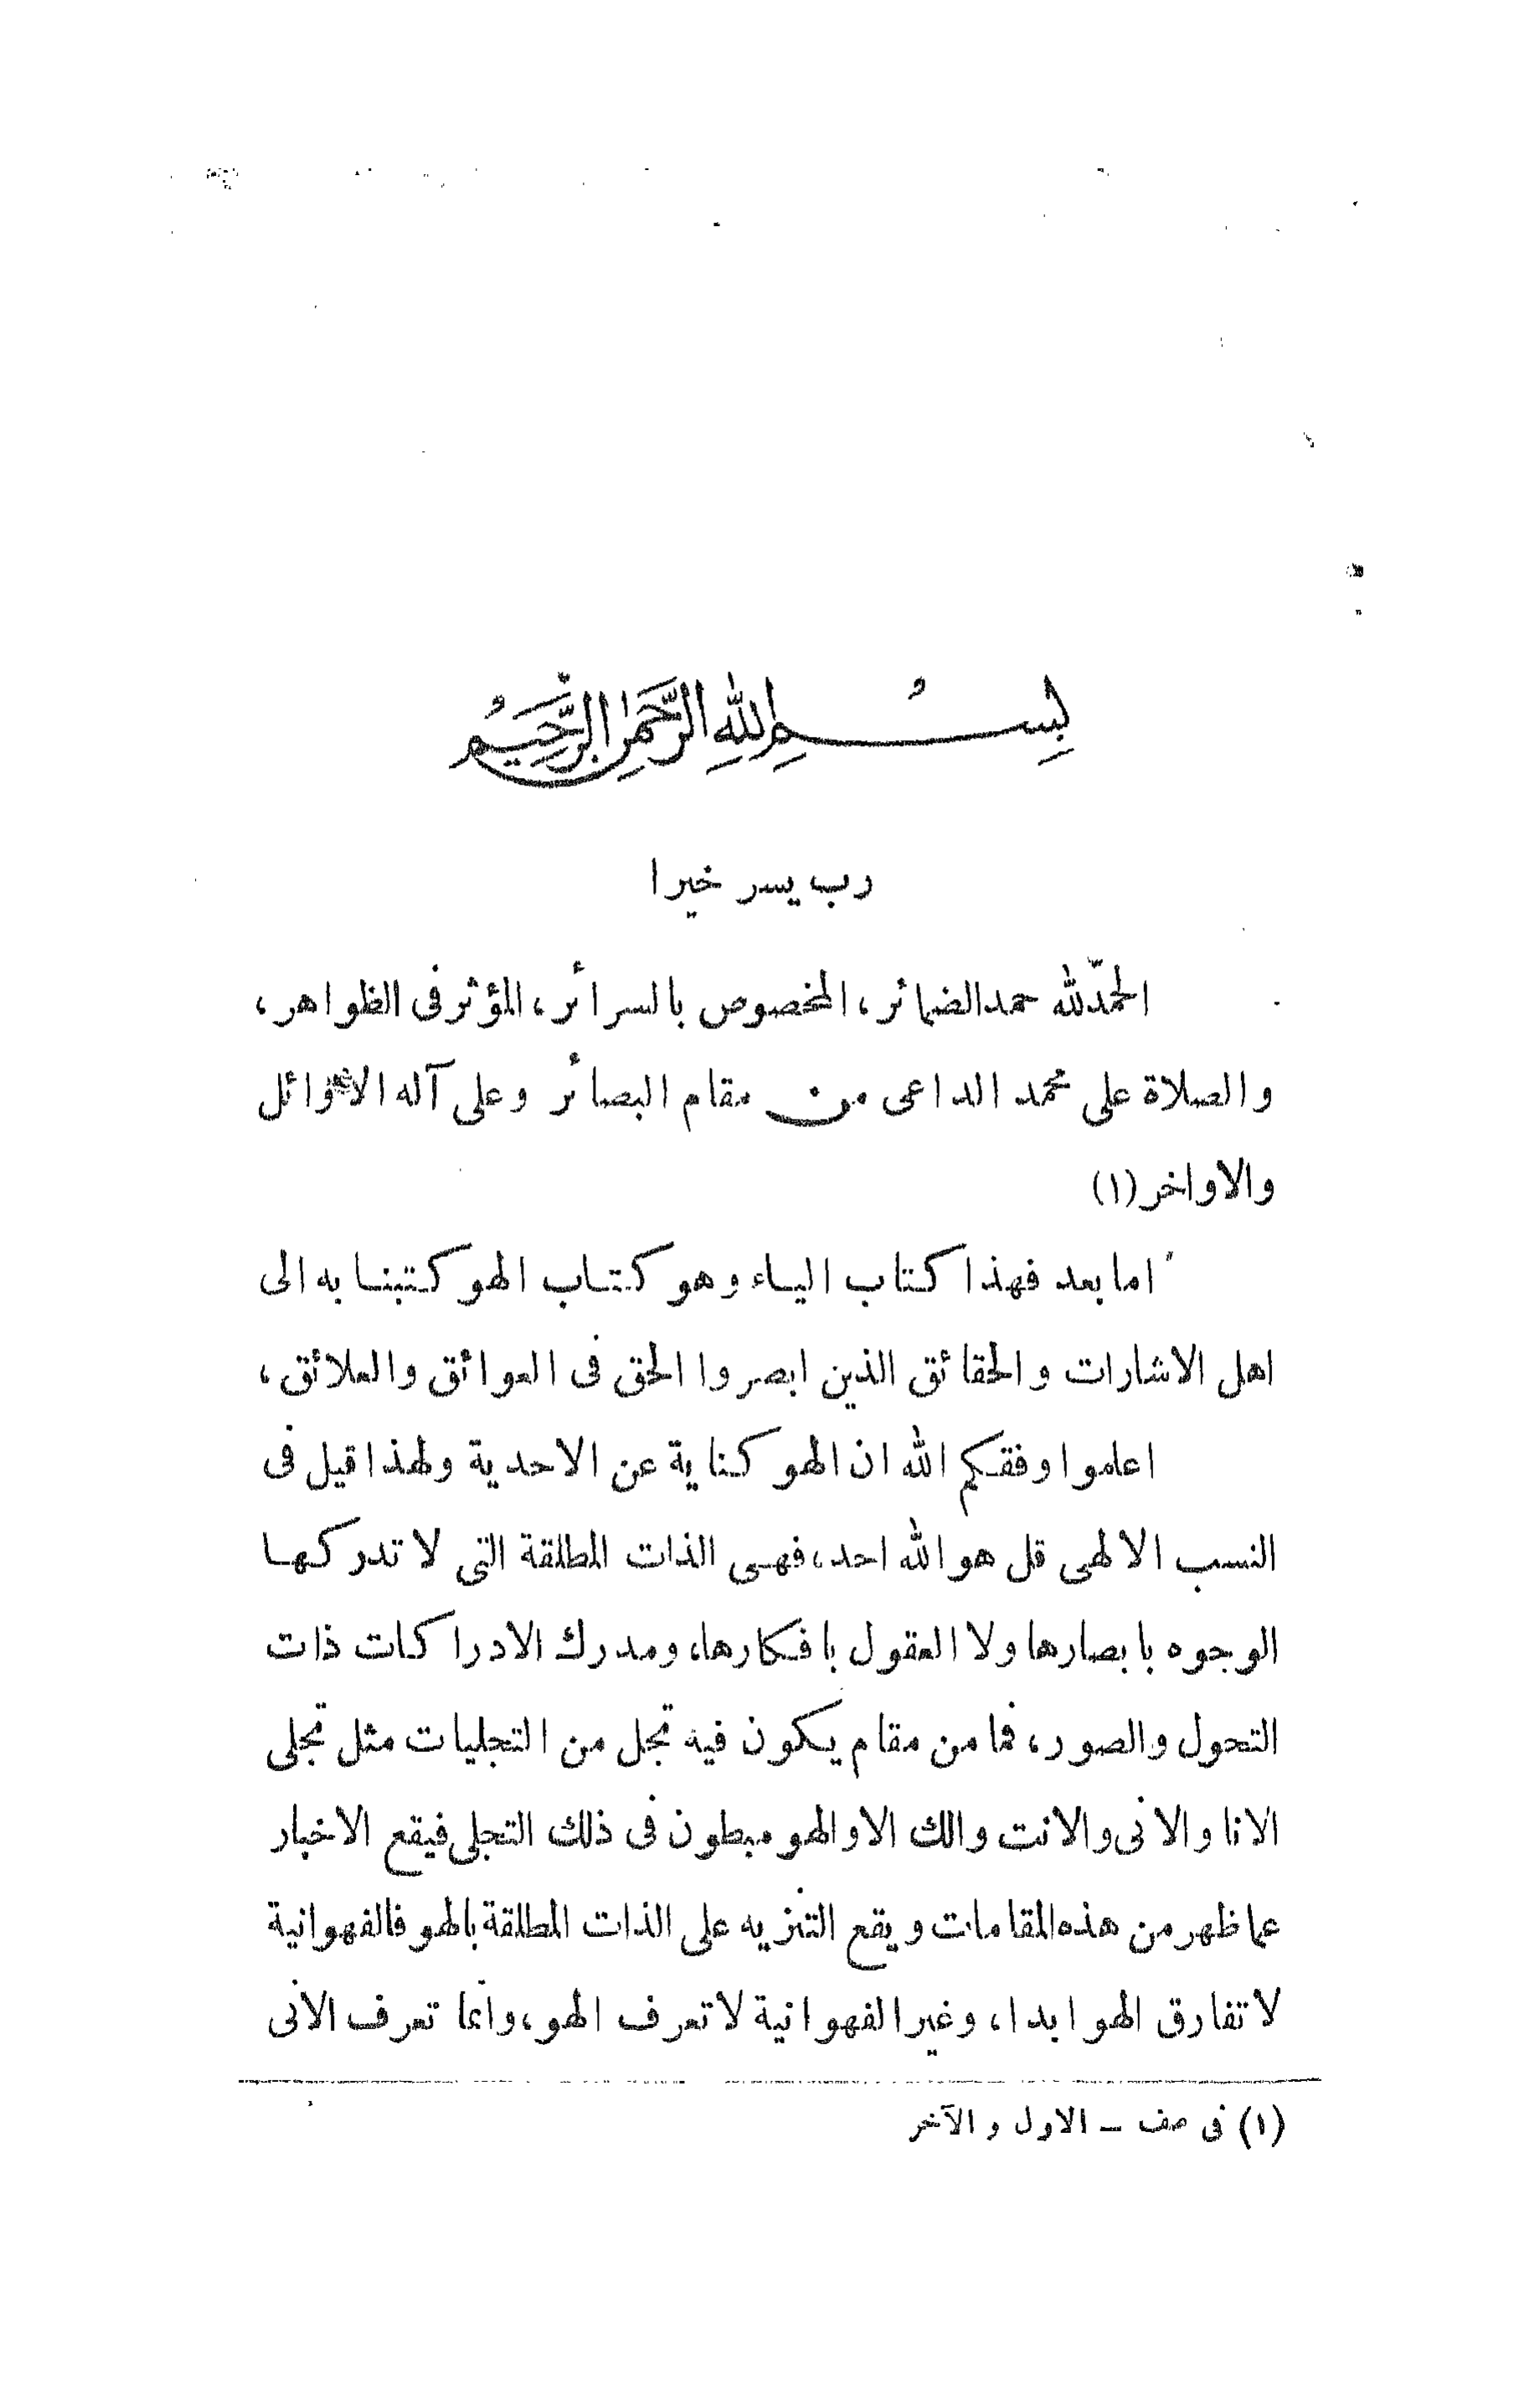 بِسْمِ اللهِ الرَّحْمٰنِ الرَّحِيْمِ
رب يسر خيرا
الحمد لله حمد الضمائر، المخصوص بالسرائر، المؤثر فى الظواهر،
والصلاة على محمد الداعى من مقام البصائر وعلى آله الاوائل
والاواخر (١)
اما بعد فهذا كتاب الياء وهو كتاب الهو كتبنا به الى
اهل الاشارات والحقائق الذين ابصروا الحق فى العوائق والعلائق،
اعلموا وفقكم الله ان الهو كناية عن الاحدية ولهذا قيل فى
النسب الالهى قل هو الله احد، فهى الذات المطلقة التى لا تدركها
الوجوه بابصارها ولا العقول بافكارها، ومدرك الادراكات ذات
التحول والصور، فما من مقام يكون فيه تجل من التجليات مثل تجلى
الانا والانى والانت والك الا والهو مبطون فى ذلك التجلى فيقع الاخبار
عما ظهر من هذه المقامات ويقع التنزيه على الذات المطلقة بالهو فالفهوانية
لا تفارق الهو ابدا، وغير الفهوانية لا تعرف الهو، وانما تعرف الانى
(١) فى صف - الاول والآخر